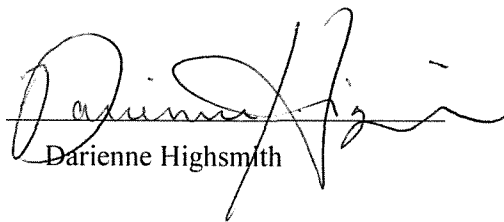 Darienne Highsmith